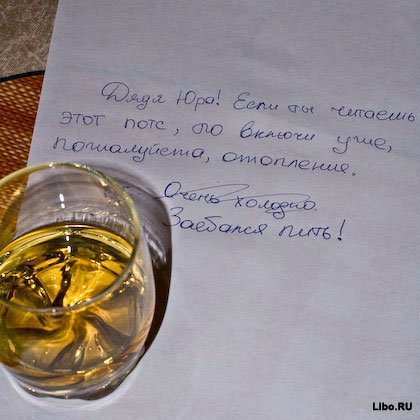 Дядя Юра! Если ты читаешь
этот потс, то включи уже,
пожалуйста, отопление.
Очень холодно.
Заебался пить!
Libo.RU